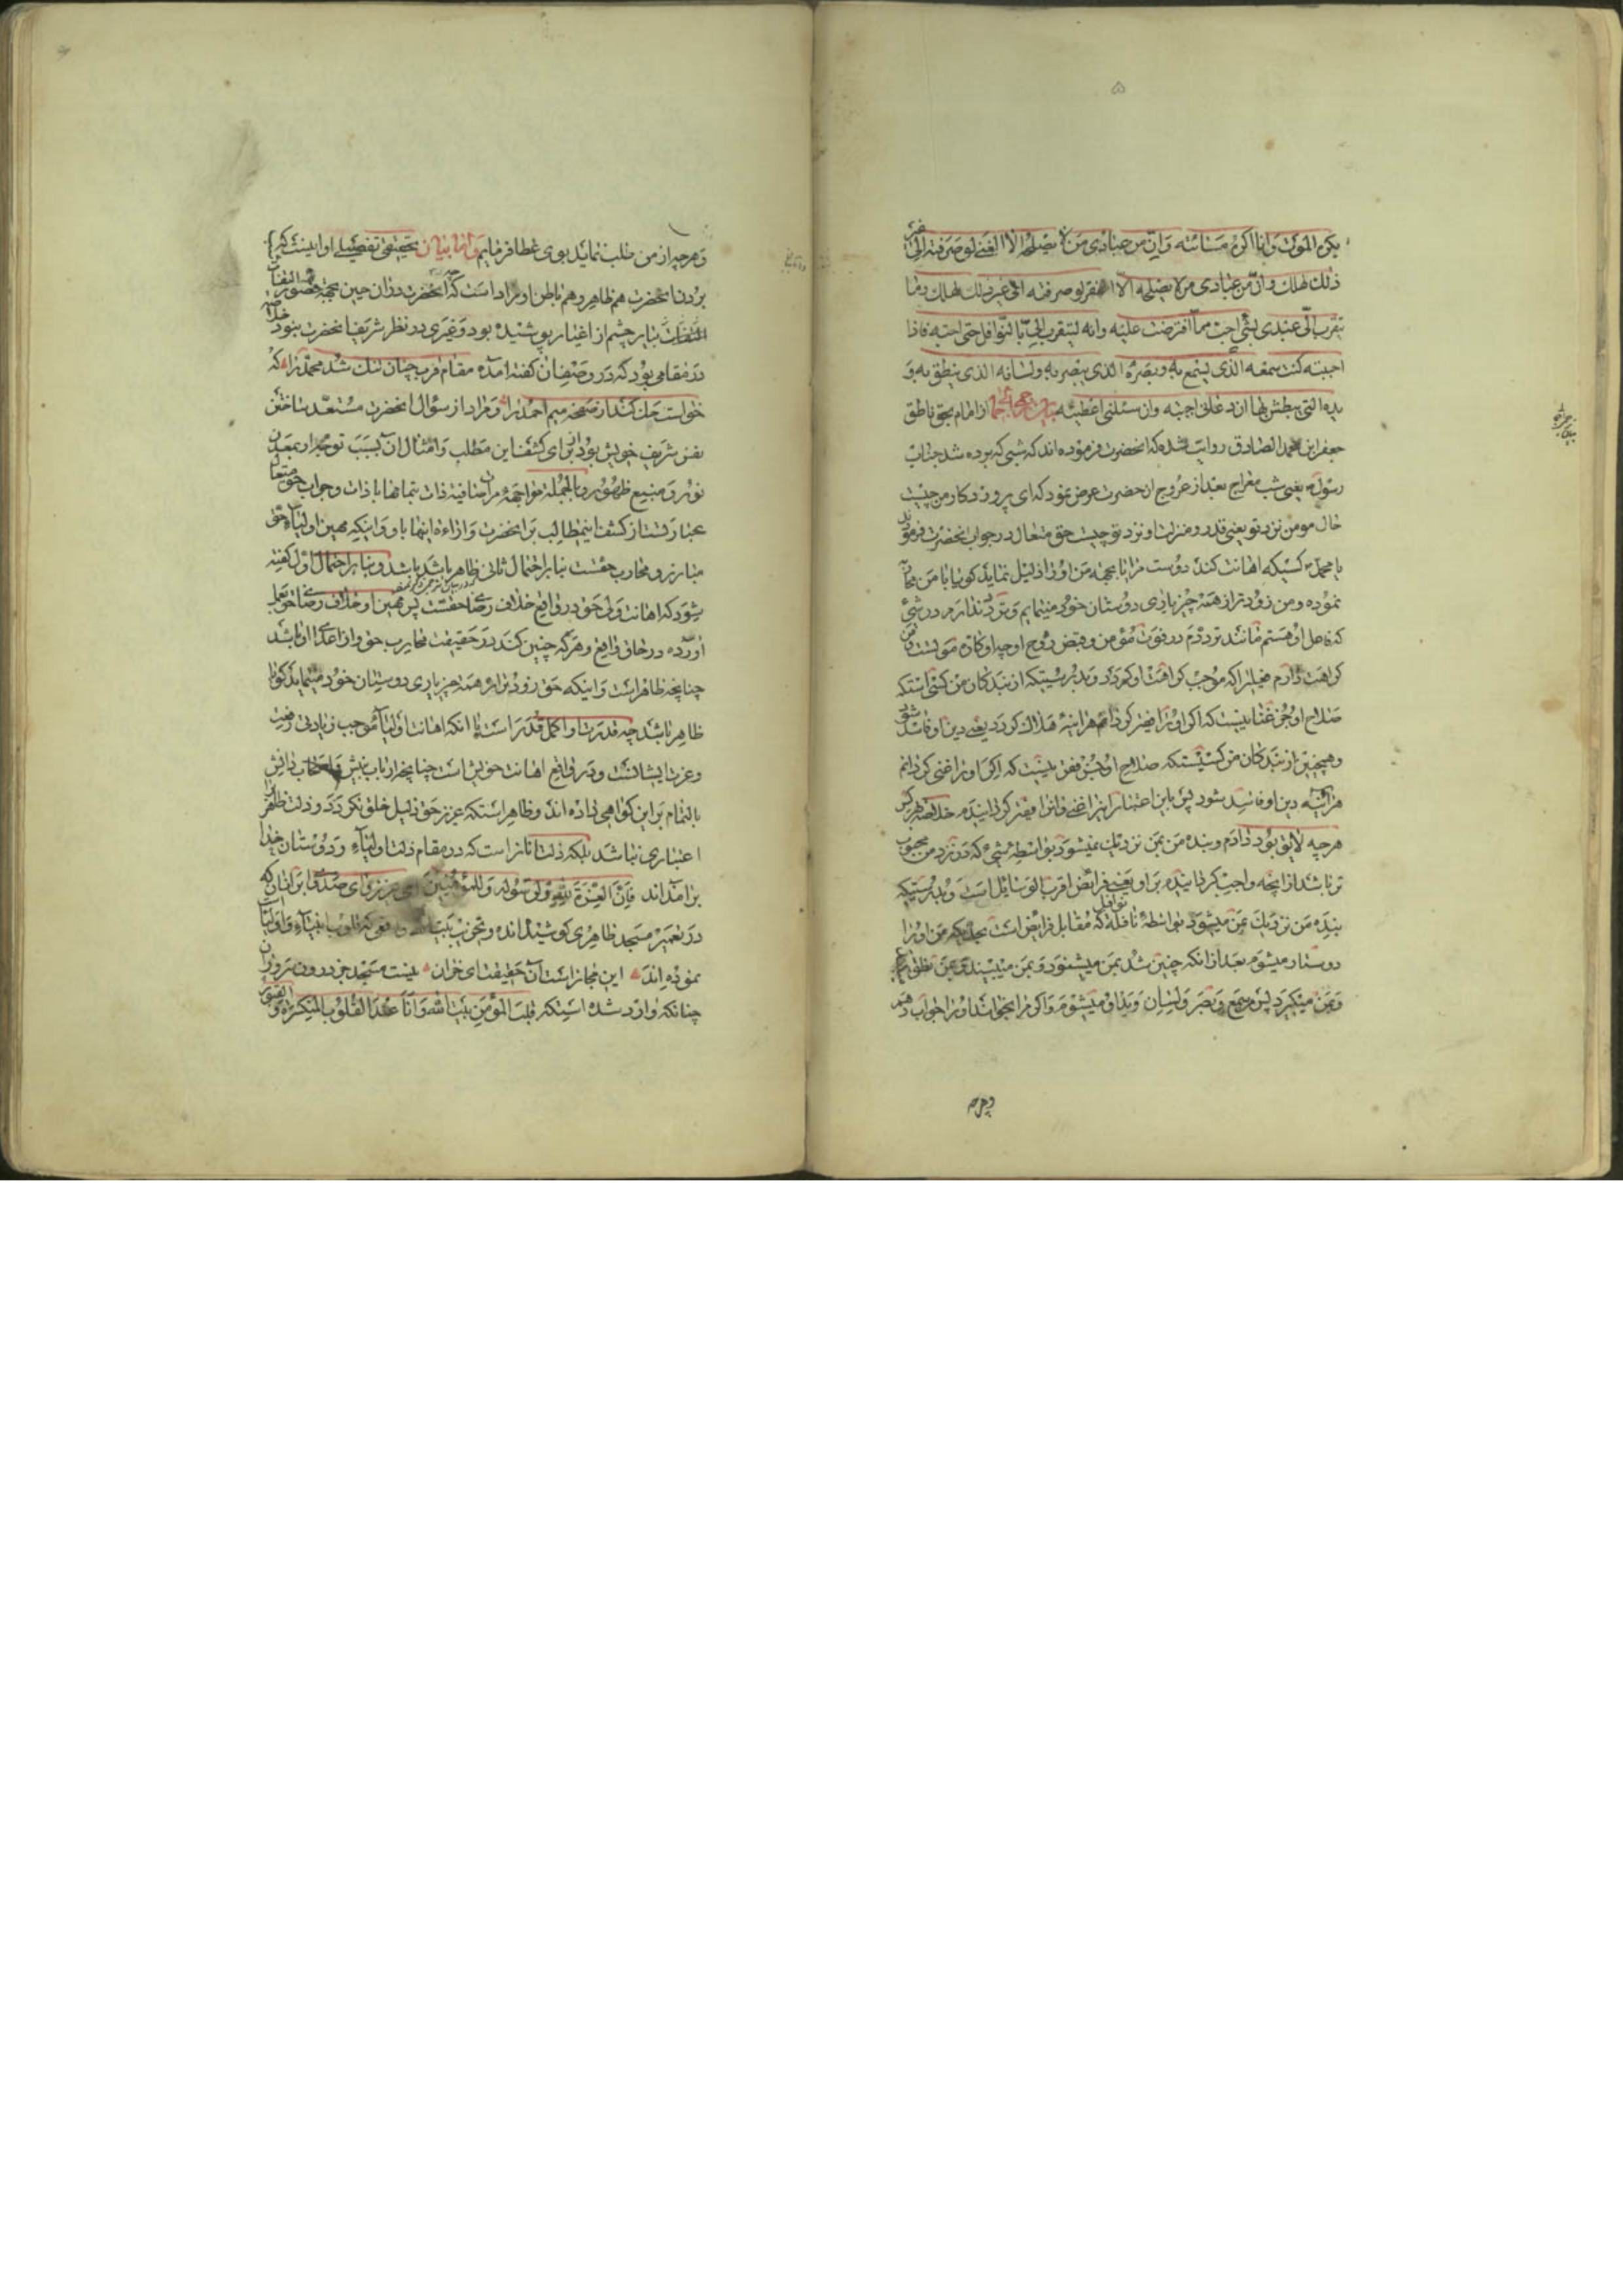 ۵
یکره الموت وانا اکره مسائته وان من عبادی من لا یصلحه الا الغنی لو صرفته الی غیر
ذلک لهلک وان من عبادی من لا یصلحه الا الفقر لو صرفته الی غیر ذلک لهلک وما
تقرب الی عبدی بشیء احب مما افترضت علیه وانه لیتقرب الی بالنوافل حتی احبه فاذا
احببته کنت سمعه الذی یسمع به وبصره الذی یبصر به ولسانه الذی ینطق به و
یده التی یبطش بها ان دعانی اجبته وان سئلنی اعطیته بیان از امام بحق ناطق
جعفر ابن محمد الصادق روایت شده که انحضرت فرموده اند که شبی که برده شد جناب
رسول یعنی شب معراج بعد از عروج انحضرت عرض نمود که ای پروردکار من چیست
حال مومن نزد تو یعنی قدر و منزلت او نزد تو چیست حق متعال در جواب انحضرت فرمودند
یا محمد کسیکه اهانت کند دوست مرا یا بجهه من او را ذلیل نماید کویا با من
نموده و من زودتر از همه چیز بیاری دوستان خود مینمایم و تردد ندارم در شیئ
که فاعل او هستم مانند ترددم در فوت مؤمن و قبض روح او چه او کاره موتست و من
کراهت دارم چیزیرا که موجب کراهت او کردد و بدرستیکه از بندکان من کسی استکه
صلاح او بجز غنا نیست که اکر او را فقیر کردانم هراینه هلاک کردد یعنی دین او فاسد شود
وهمچنین از بندکان من کسیستکه صلاح او بجز فقر نیست که اکر او را غنی کردانم
هراینه دین او فاسد شود پس باین اعتبار اینرا غنی وانرا فقیر کردانیدم خلاصه هرکس
هرچه لایق بود دادم و بنده من بمن نزدیک نمیشود بواسطه شیئ که در نزد من محبوب
تر باشد از انچه واجب کردانیده بر او یعنی فرائض اقرب الوسائل است و بدرستیکه
بنده من نزدیک بمن میشود بواسطه نافله که مقابل فرایض است بحدیکه من او را
نوافل
دوستار میشوم بعد از انکه چنین شد بمن میشنود و بمن میبیند و بمن نطق
وبمن میکیرد پس من سمع و بصر و لسان و ید او میشوم و اکر مرا بخواند او را جواب دهم
وهرچه
وهرچه از من طلب نماید بوی عطا فرمایم واما بیان تحقیقی تفصیلی او اینست که
بردن انحضرت هم ظاهر و هم باطن او مراد است که انحضرت در ان حین بجهة قصور التفات
التفات بتا بر چشم از اغیار پوشیده بود و غیری در نظر شریف انحضرت بنود خلاصه
در مقامی بود که در وصف ان کفته امده مقام قرب چنان تنک شد محمد را که
خواست حک کند از صفحه میم احمد را و مراد از سؤال انحضرت مستعد ساختن
نفس شریف خویش بود برای کشف این مطلب و امثال ان بسبب توجه او بمعدن
نور و منبع ظهور و بالجمله مواجهه مرات صافیه ذات بتمامها با ذات و جواب حق متعال
عبارتست از کشف اینمطالب بر انحضرت و ازاءه اینها باو و اینکه مهین اولیاء حق
مبارز و محارب حقست بنابر احتمال ثانی ظاهر باشد باشد و بنابر احتمال اول کفته
شود که اهانت ولی حق در واقع خلاف رضاء حقست پس مهین او خلاف رضاء حق بعمل
اورده در حاق واقع و هرکه چنین کند در حقیقت محارب حق و از اعداء او باشد
چنانچه ظاهر است و اینکه حق زودتر از همه چیز یاری دوستان خود مینماید کویا
ظاهر باشد چه قدرت او اکمل قدر است یا انکه اهانت اولیا موجب زیادتی رفعت
وعزت ایشانست و در واقع اهانت خویش است چنانچه ارباب بینش و اصحاب دانش
بالتمام بر این کواهی داده اند و ظاهر استکه عزیز حق ذلیل خلق نکردد و ذلت ظاهر را
اعتباری نباشد بلکه ذلت انانرا است که در مقام ذلت اولیاء و دوستان خدا
بر امده اند فان العزة لله ولرسوله وللمؤمنین ای عزیز ندای صدق بر انان که
در تعمیر مسجد ظاهری کوشیده اند و تخریب بیت واقعی که قلوب انبیاء و اولیا
نموده اند این مجاز است آن حقیقت ای خران نیست مسجد جز درون سروران
چنانکه وارد شده استکه قلب المؤمن بیت الله وانا عند القلوب المنکسرة و القبور